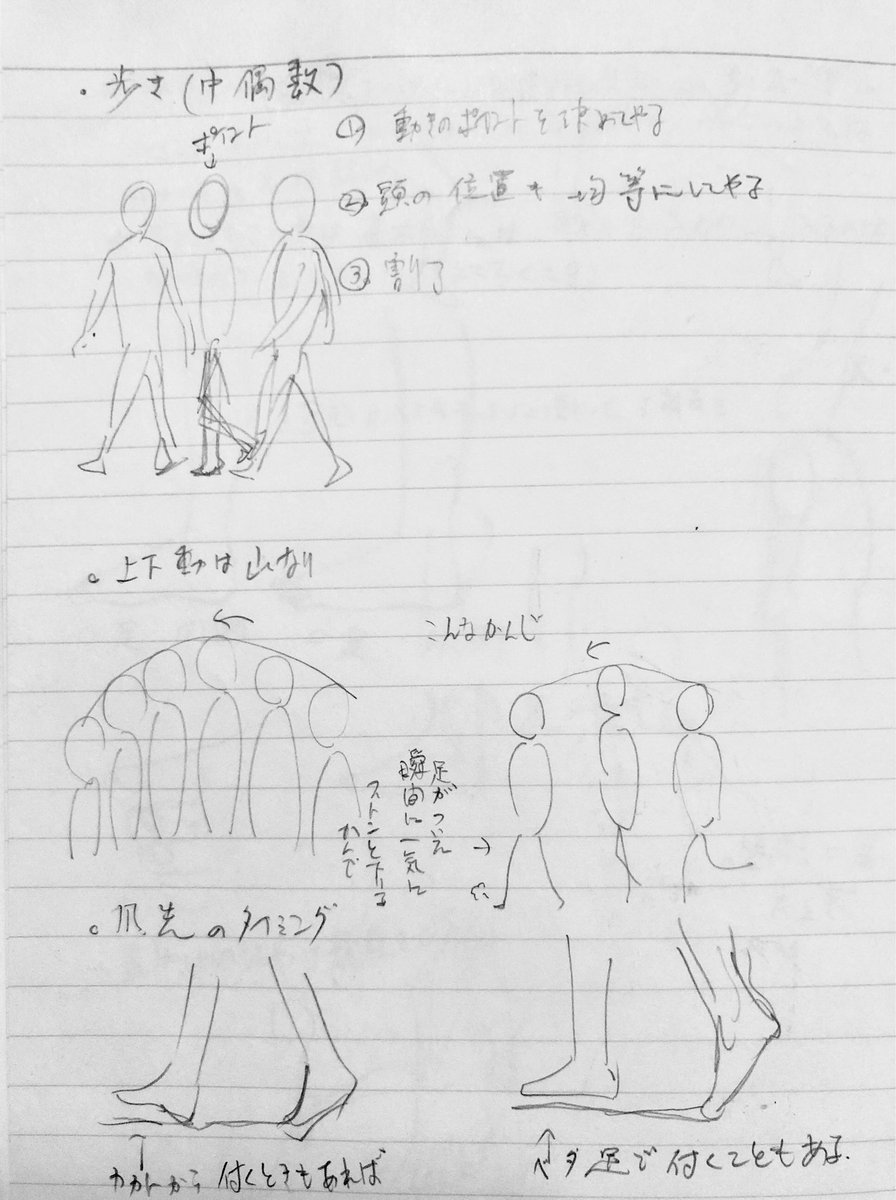 ・歩き(中偶数)
ポイント
① 動きのポイントを決めてやる
② 頭の位置も均等にしてやる
③ 割り
。上下動は山なり
こんなかんじ
足がついた
瞬間に一気に
ストンと下りる
かんじで
。爪先のタイミング
カカトから付くときもあれば
ベタ足で付くこともある。